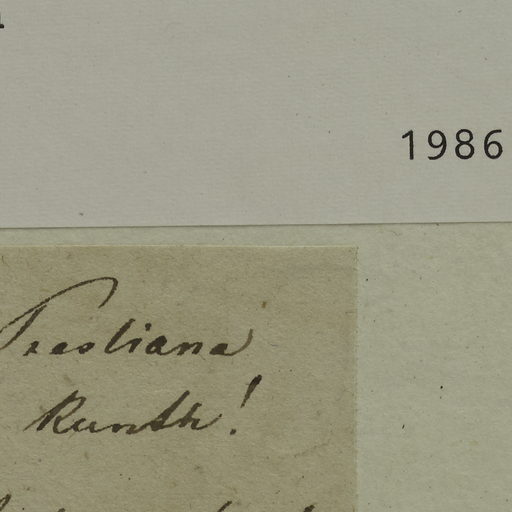 1986
Presliana
Kunth!